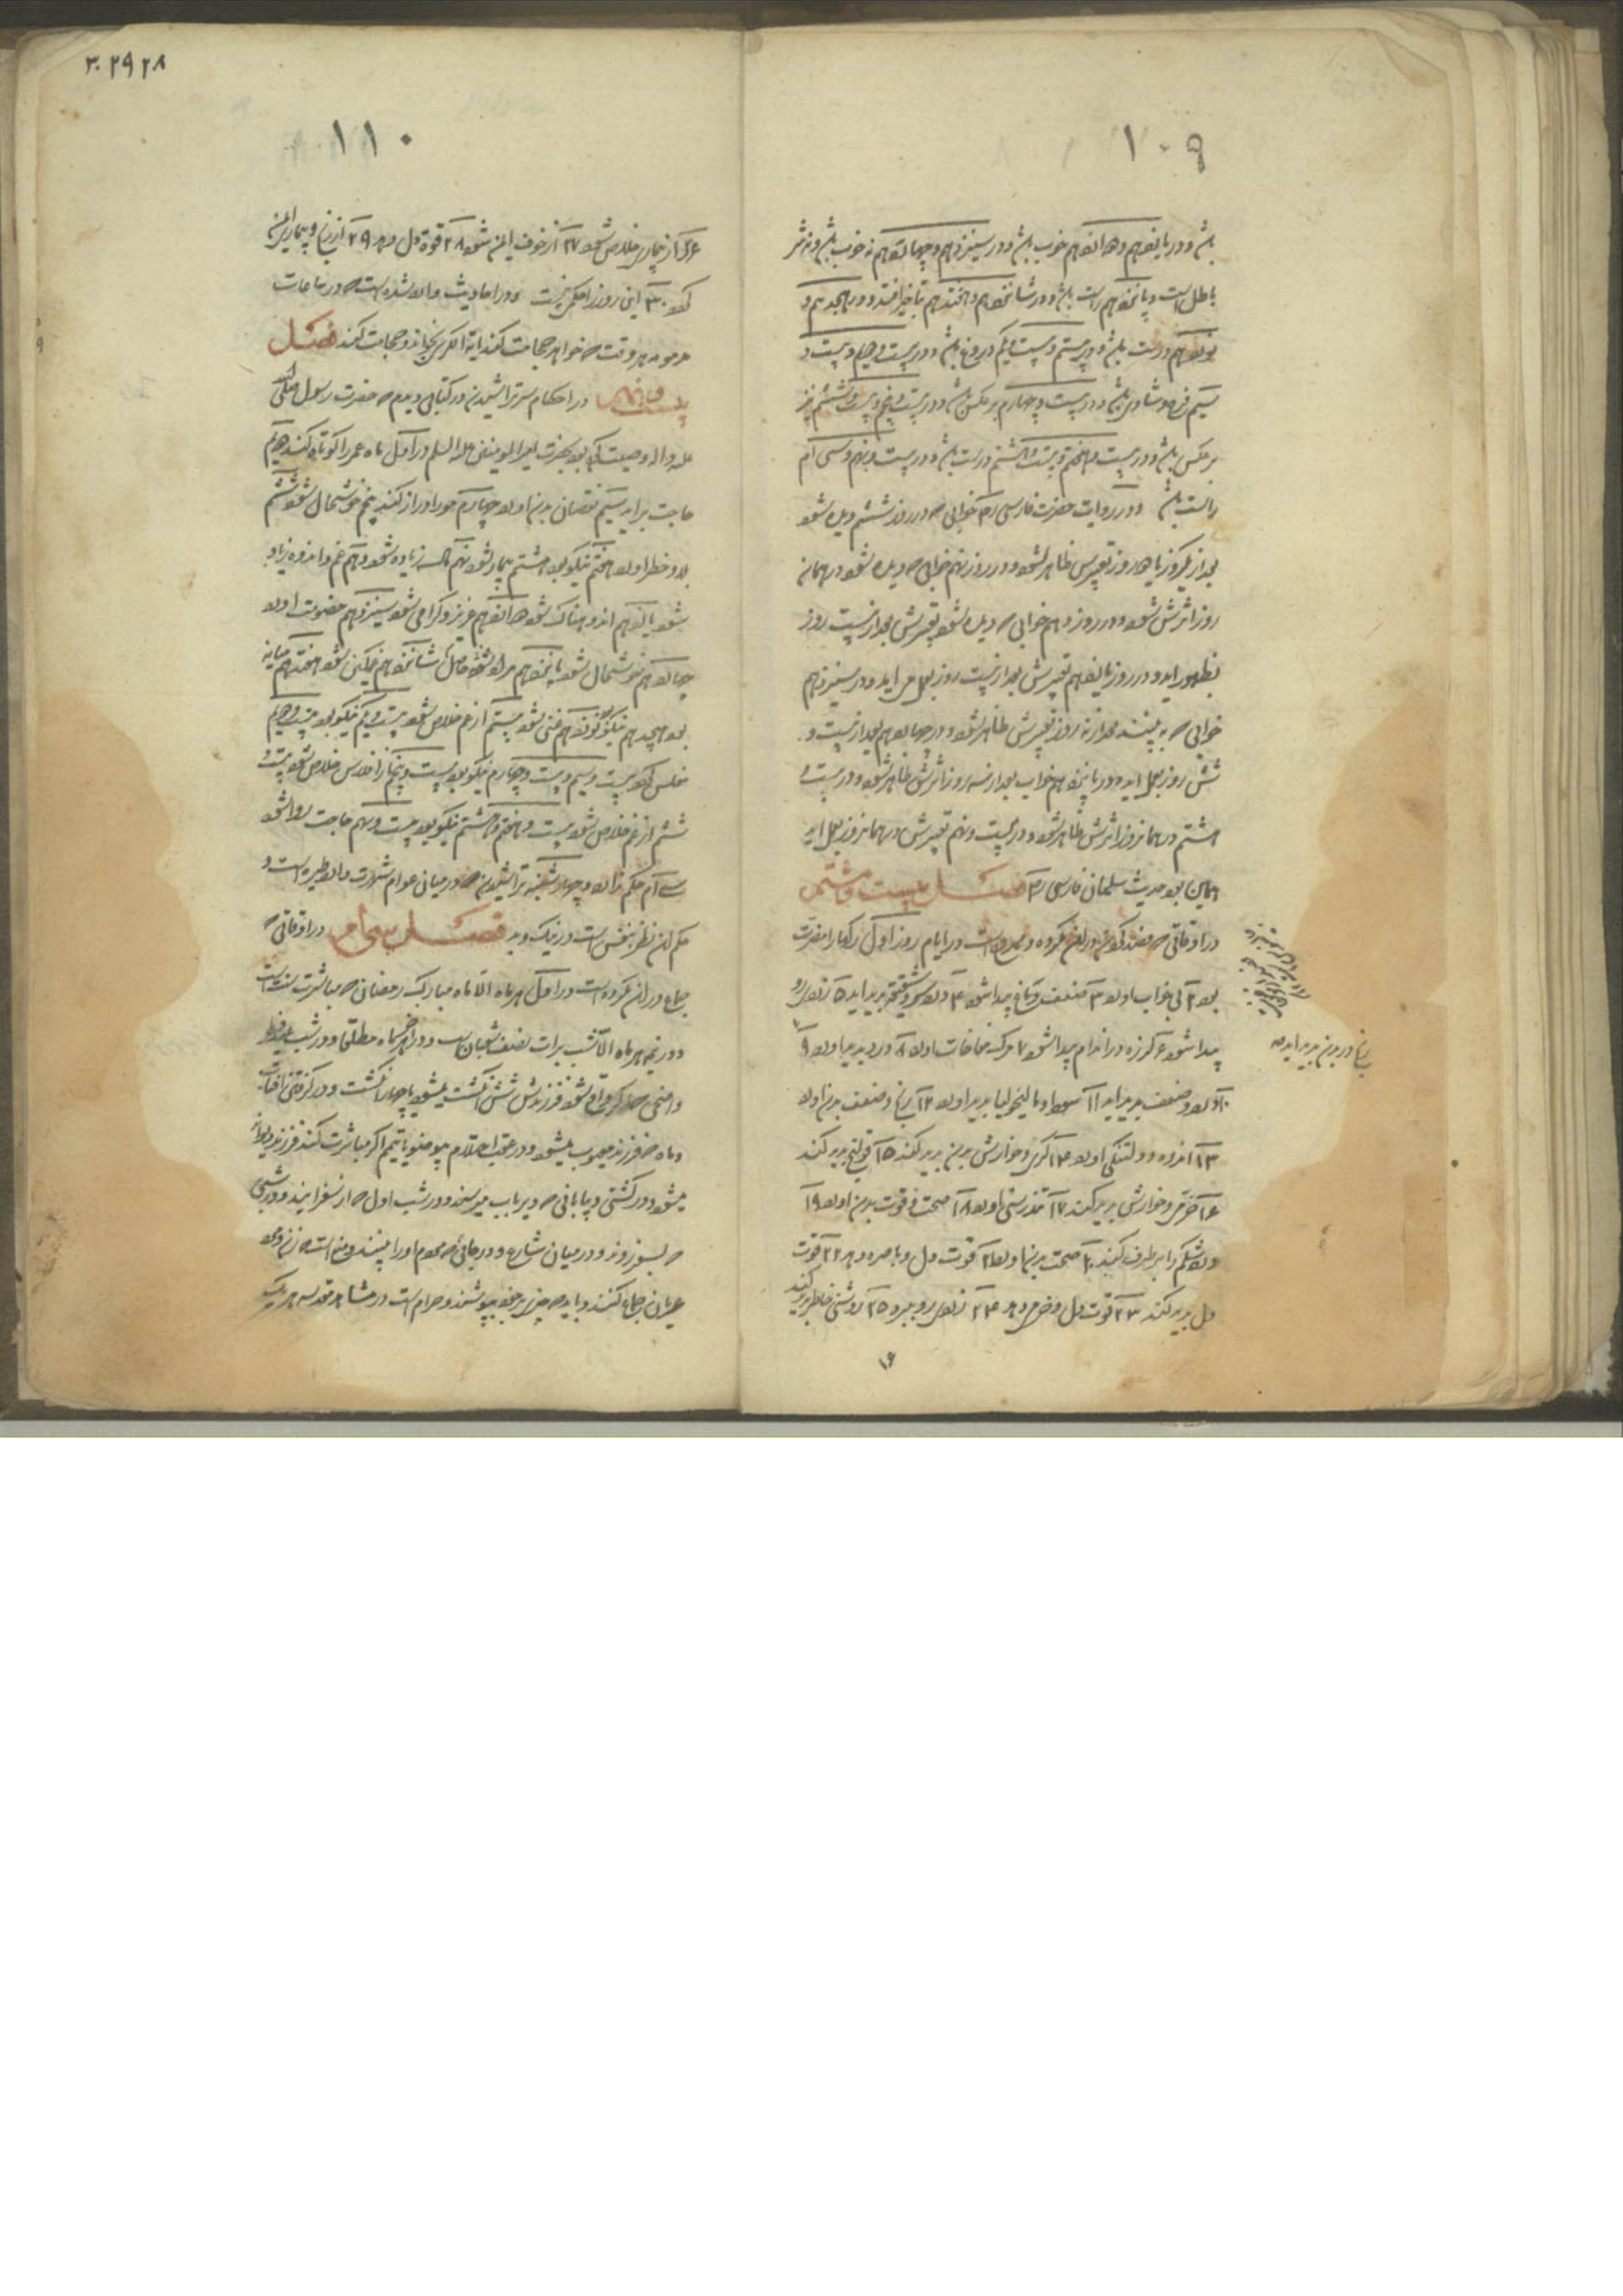 ۱۰۹
باشد و در یازدهم و دوازدهم خوب باشد و در سیزدهم و چهاردهم نه خوب باشد و نه شر
باطل است و پانزدهم راست باشد و در شانزدهم و هفتدهم بتاخیر افتد و در هجدهم و
نوزدهم درست باشد و در بیستم و بیست و یکم دروغ باشد و در بیست و دویم و بیست و
سیم فرح و شادی باشد و در بیست و چهارم برعکس باشد و در بیست و پنجم و بیست و ششم نیز
برعکس باشد و در بیست و هفتم و بیست و هشتم درست باشد و در بیست و نهم و سی ام
راست باشد و در روایت حضرت فارسی رض خوابی که در روز ششم دیده شود
بعد از یکروز یا دو روز تعبیرش ظاهر شود و در روز نهم خوابی که دیده شود در همان
روز اثرش شود و در روز دهم خوابی که دیده شود تعبیرش بعد از بیست روز
بظهور اید و در روز یازدهم تعبیرش بعد از بیست روز بعمل می اید و در سیزدهم
خوابی که به بینند بعد از نه روز تعبیرش ظاهر شود و در چهاردهم بعد از بیست و
شش روز بعمل اید و در پانزدهم خواب بعد از سه روز اثرش ظاهر شود و در بیست و
هشتم در همانروز اثرش ظاهر شود و در بیست و نهم تعبیرش در همانروز بعمل اید
همین بود حدیث سلمان فارسی رض فصل بیست و هشتم
در اوقاتی که فصد کردن در آن مکروه و ممدوح است در ایام روز اول رکها را مضرت
بود ۲ بی خواب اورد ۳ ضعف دماغ پیدا شود ۴ درد سر و شقیقه پدید اید ۵ زردی رو
پیدا شود ۶ لرزه در اندام پیدا شود ۷ مرک مفاجات اورد ۸ درد پدید اورد ۹
۱۰ درد و ضعف پدید اید ۱۱ سودا و مالیخولیا پدید اورد ۱۲ رنج و ضعف بدن اورد
۱۳ اندوه و دلتنگی اورد ۱۴ کری و خوارش بدن پدید کند ۱۵ قولنج پدید کند
۱۶ و خوارش پدید کند ۱۷ تندرستی اورد ۱۸ صحت و قوت بدن اورد ۱۹
درد شکم را برطرف کند ۲۰ صحت بدن اورد ۲۱ قوت دل و باصره دهد ۲۲ قوت
دل پدید کند ۲۳ قوت دل و فرح دهد ۲۴ زردی رو ببرد ۲۵ روشنی خاطر پدید کند
رنج در بدن پدید اید
۱۶
۳۰۲۹۲۸
۱۱۰
۲۶ از بیماری خلاص شود ۲۷ از خوف ایمن شود ۲۸ قوة دل دهد ۲۹ از رنج و بیماری ایمن
کرد ۳۰ این روز را حکمی نیست و در احادیث وارد شده است که در ساعات
هر موسم هر وقت که خواهد حجامت کند ایة الکرسی بخواند و حجامت کند فصل
بیست و نهم در احکام سر تراشیدن در کتابی دیدم که حضرت رسول صلی الله
علیه و اله وصیت کرده بود بحضرت امیر المومنین علیه السلم در اول ماه عمر را کوتاه کند دویم
حاجت براید سیم نقصان بدن اورد چهارم عمر او دراز کند پنجم خوشحال شود ششم
بلا و خطر اورد هفتم نیکو بود هشتم بیمار شود نهم مالش زیاده شود دهم غم و اندوه زیاد
شود یازدهم اندوهناک شود دوازدهم عزیز و گرامی شود سیزدهم خصومت اورد
چهاردهم خوشحال شود پانزدهم مراد او حاصل شود شانزدهم غمکین شود هفتدهم میانه
بود هجدهم نیکو بود نوزدهم غنی شود بیستم از غم خلاص شود بیست و یکم نیکو بود بیست و دویم
مفلس کرد بیست و سیم و بیست و چهارم نیکو بود بیست و پنجم از افلاس خلاص شود بیست و
ششم از غم خلاص شود بیست و هفتم و هشتم نیکو بود بیست و نهم حاجت روا شود
سی ام حکم ندارد و چهارشنبه تراشیدن که در میان عوام شهرت دارد طیره است و
حکم ان نظر بنفس است در نیک و بد فصل سی ام در اوقاتی که
جماع در ان مکروه است در اول هر ماه الا ماه مبارک رمضان که مباشرت سنت است
و در نیمه هر ماه الا شب برات نصف شعبان است و در اخر ماه مطلقا و در شب عید فطر
و اضحی که اگر واقع شود فرزندش شش انگشت میشود یا چهار انگشت و در گرفتن افتاب
و ماه که فرزند معیوب میشود و در عقب احتلام بی وضو یا تیمم اگر مباشرت کنند فرزند دیوانه
میشود و در کشتی و بیابانی که دیر باب میرسند و در شب اول که از سفر ایند و در شبی
که بسفر روند و در میان شارع و در جائی که مردم او را بینند و منع است که زن و مرد
عریان جماع کنند و باید که چیزی بر خود بپوشند و حرام است در مشاهد مقدسه هر یک